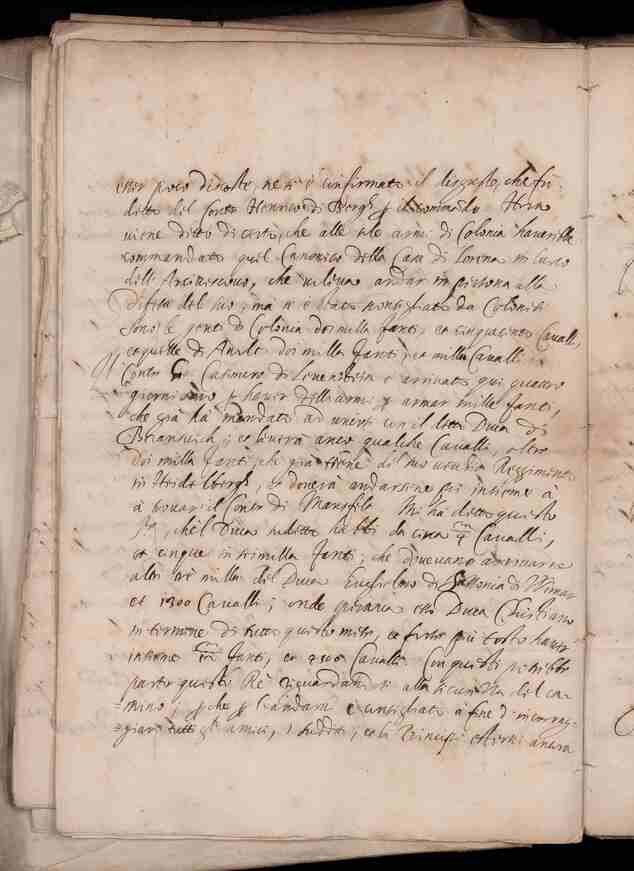 esser poco discoste, ne si è confirmato il disgusto, che fu
detto del Conte Henrico di Bergh il comando. Hora
viene detto di certo, che alle armi di Colonia haverebbe
commandato quel Canonico della Casa di Lorena in luoco
dell' Arcivescovo, che voleva andar in persona alla
difesa del suo; ma n'è stato
Sono le genti di Colonia doi milla fanti, et cinquecento Cavalli,
et quelle di Anolt doi milla fanti, et milla Cavalli. Il
Conte Casimiro di Levenstein è arrivato qui quattro
giorni sono haver delle armi armar mille fanti,
che già ha mandati ad unirsi con il detto Duca di
Bransvich; et leverà anco qualche Cavalli, oltre
doi milla fanti, che già tiene del suo Reggimento
in Heidelbergh, et doverà andarsene poi insieme à
à trovar il Conte di Mansfelt. Mi ha detto questo
che'l Duca sudetto habbi da circa Cavalli,
et cinque in sei milla fanti; che dovevano arrivarne
altri tre milla del Duca Guglielmo di Sassonia di Vimar
et 1300 Cavalli; onde sperava esso Duca Christiano
in termine di tutto questo mese, et forse più tosto haver
insieme fanti, et Cavalli. Con questi potrebbe
partir questo Rè riguardandosi alla sicurezza del ca-
=mino; che andare è consigliato à fine d'incorag-
=giar tutti gli amici, i sudditi, et li Principi esterni ancora